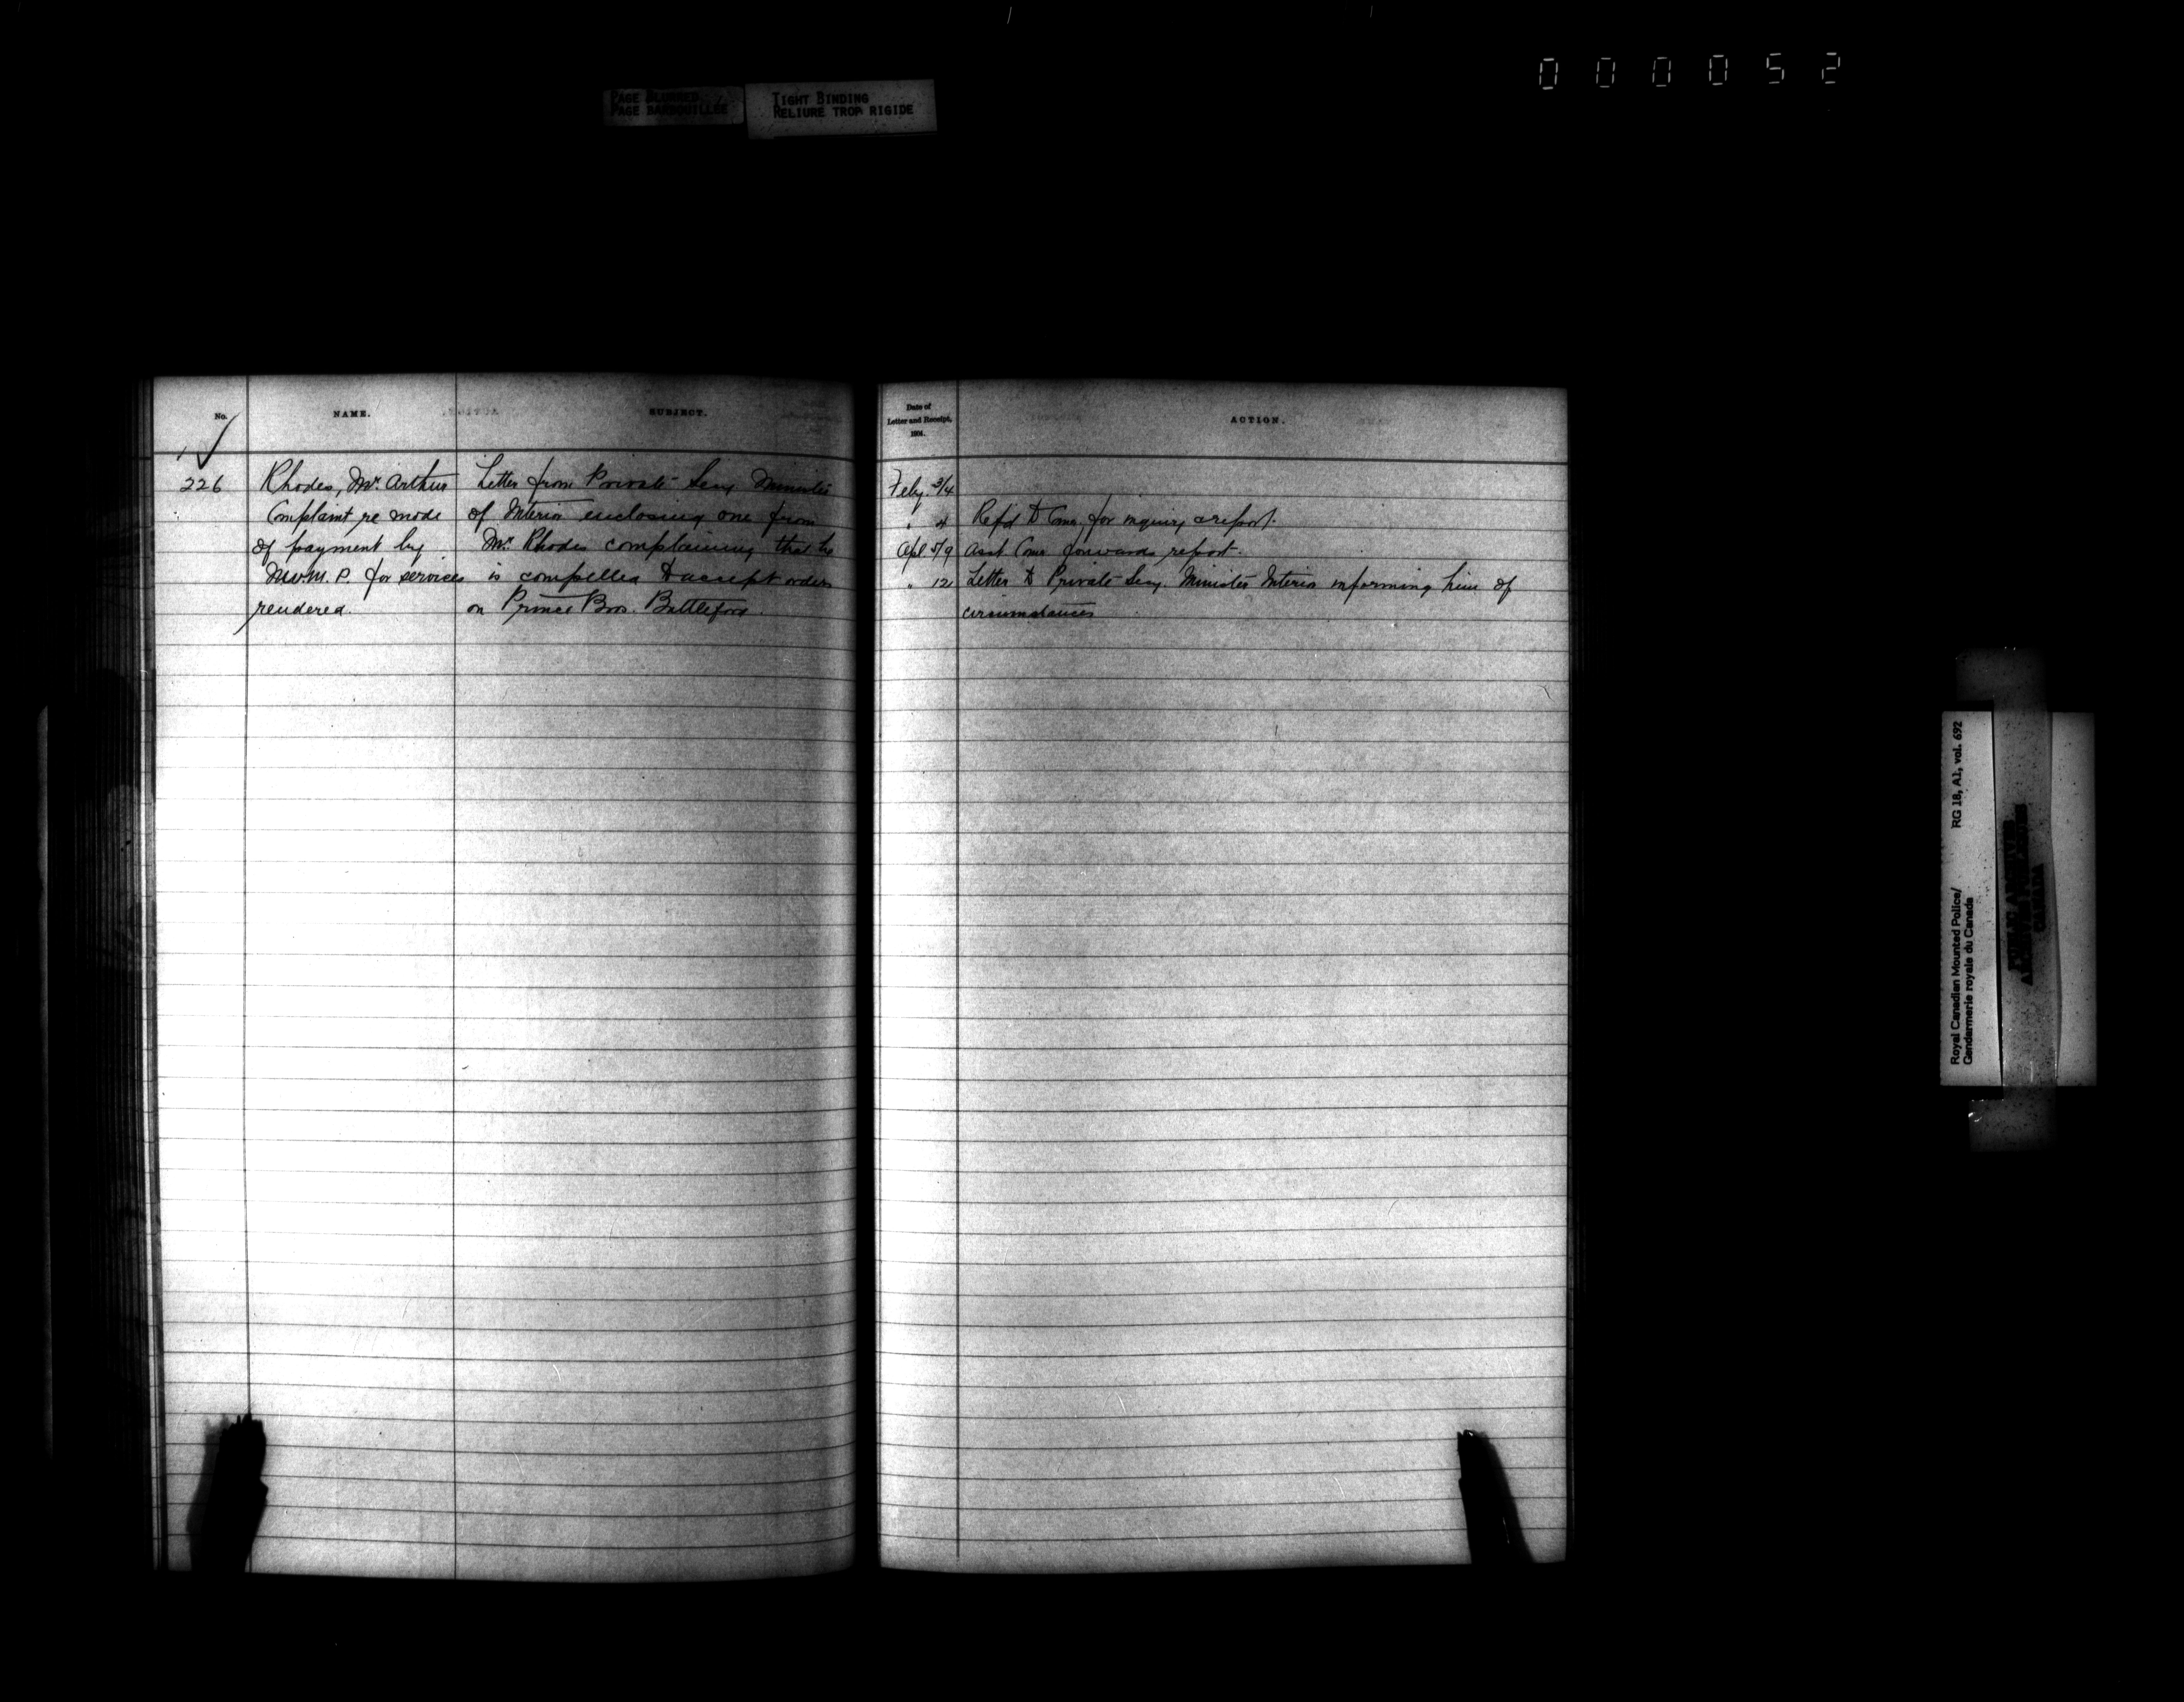 000052
PAGE BLURRED
PAGE BARBOUILLÉE
TIGHT BINDING
RELIURE TROP RIGIDE
No.
NAME.
SUBJECT.
226
Rhodes, Mr. Arthur
Complaint re mode
of payment by
N.W.M.P. for services
rendered.
Letter from Private Secy Minister
of Interior enclosing one from
Mr. Rhodes complaining that he
is compelled to accept orders
on Prince Bros. Battleford.
Date of
Letter and Receipt,
1904.
ACTION.
Feby. 3/4
" 4 Refd to Comr. for inquiry & report.
Apl 5/9 Asst Comr. forwards report.
" 12 Letter to Private Secy. Minister Interior informing him of
circumstances
Royal Canadian Mounted Police/
Gendarmerie royale du Canada
RG 18, A1, vol. 692
PUBLIC ARCHIVES
ARCHIVES PUBLIQUES
CANADA